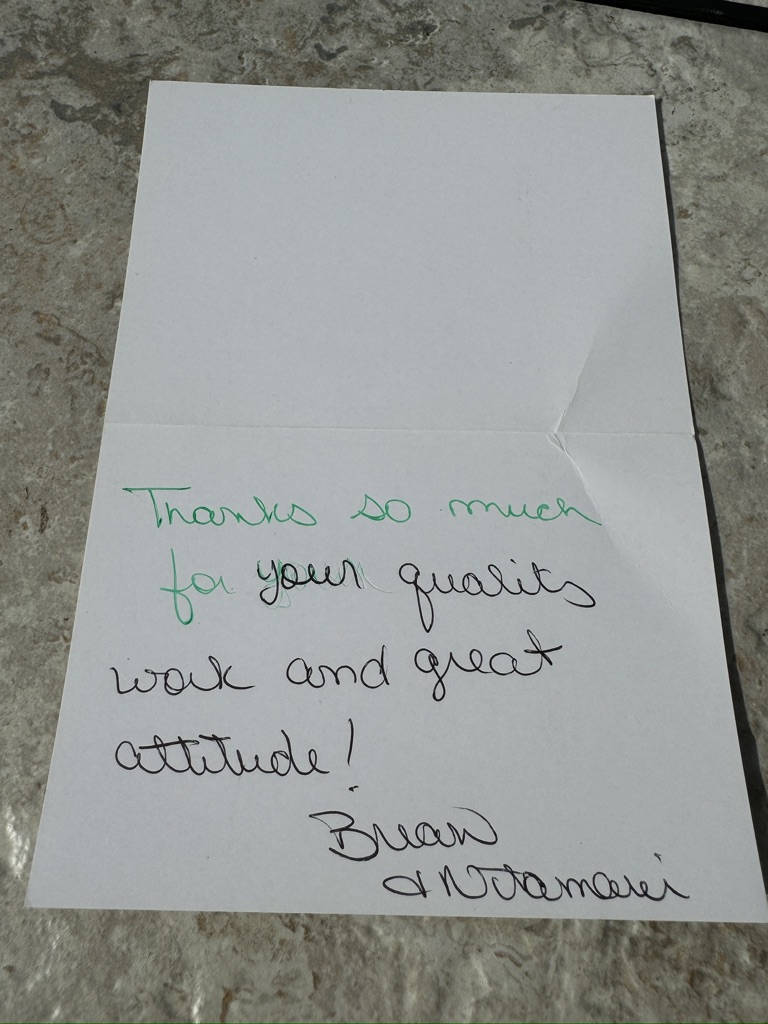 Thanks so much
for your quality
work and great
attitude!
Brian
&